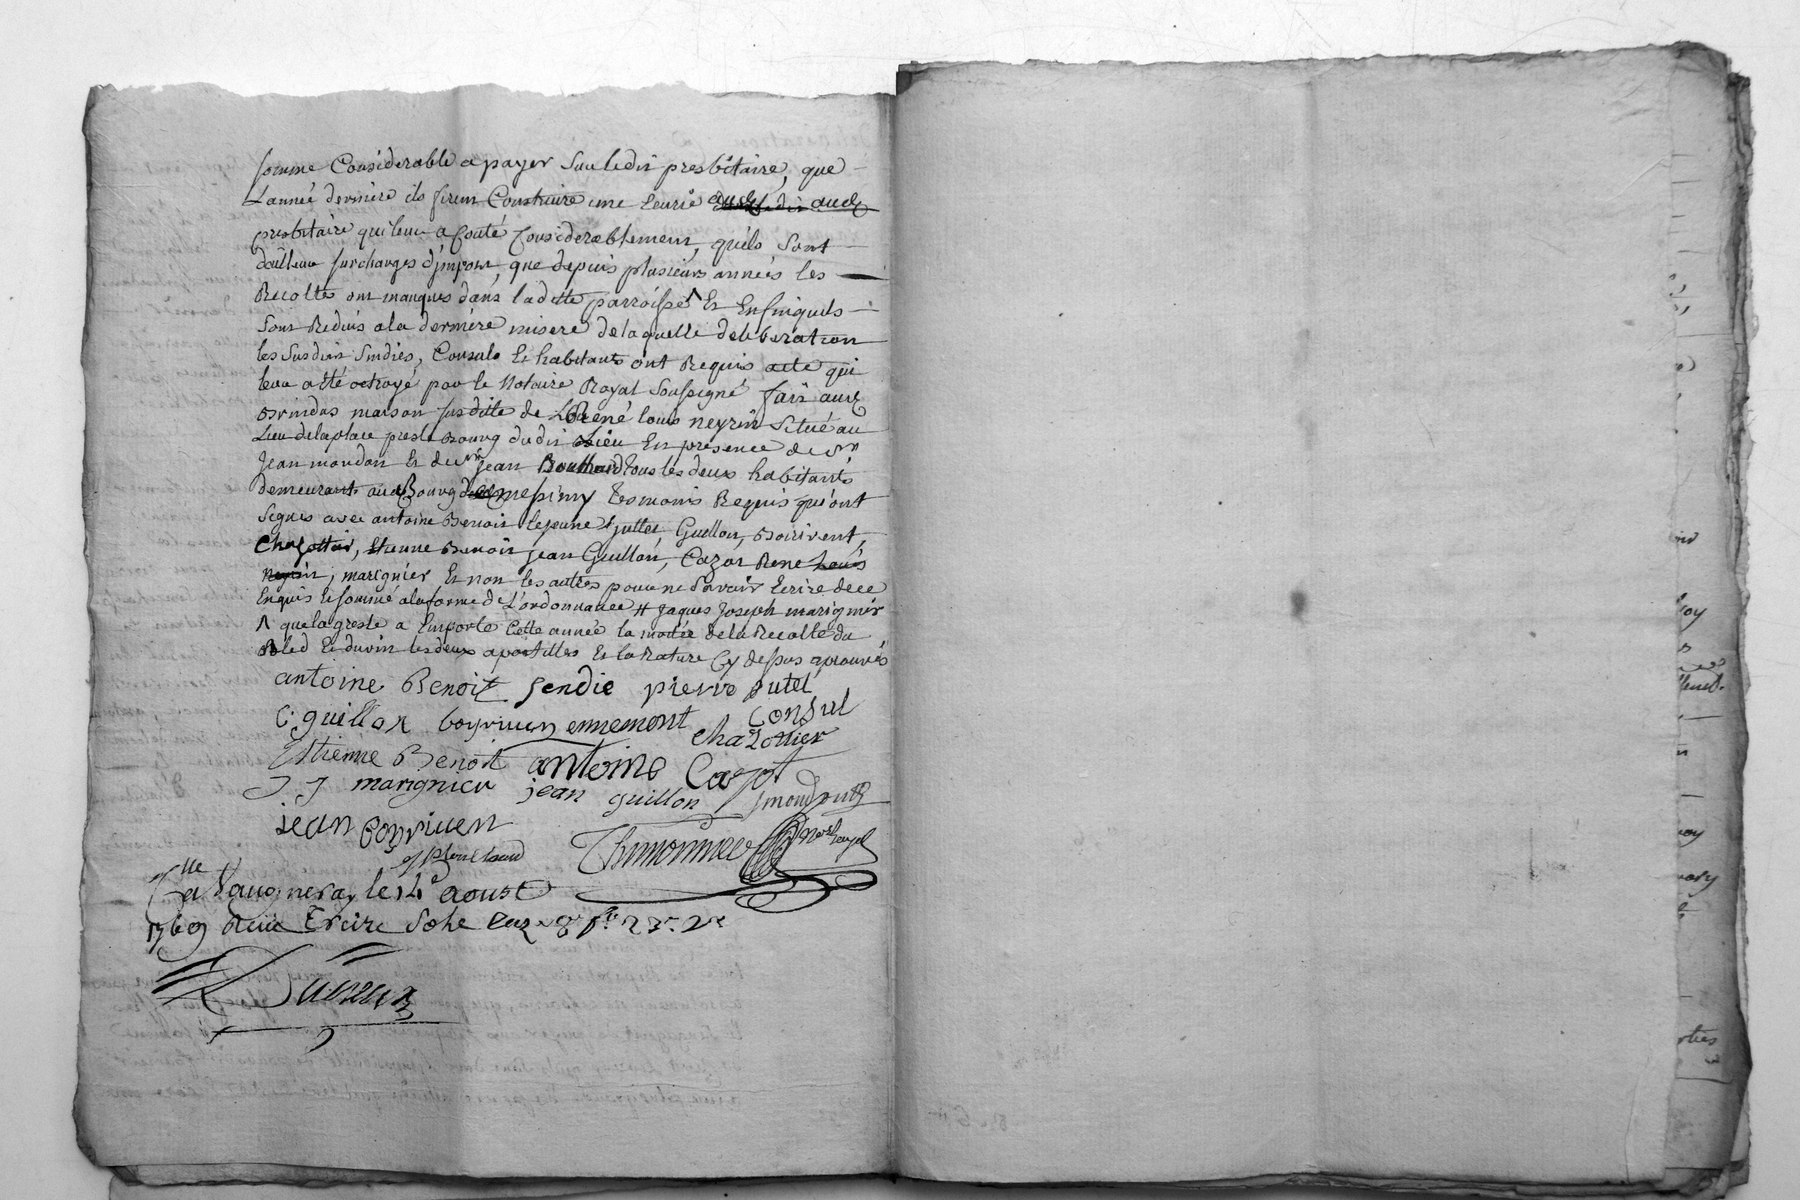 somme Considerable a payer Sur ledit presbitaire, que
L'année derniere ils firent Construire une Ecurie audit
presbitaire qui leur a Couté Considerablement, quils sont
dailleur surcharges d'impots, que depuis plusieurs années les
Recoltes ont manqués dans ladite parroisse ^ Et Enfin quils
sont Reduis a la derniere misere de laquelle deliberation
les Susdits Sindics, Consuls Et habitants ont Requis acte qui
leur a été octroyé par le Notaire Royal Soussigné fait aux
maison susditte de René louis neyrin Situé au
Lieu de la place pres le Bourg dudit Lieu En presence de sr
Jean mondon Et de sr Jean Bouthard tous les deux habitants
demeurants au Bourg de messimy temoins Requis qui ont
Signés avec antoine Benoit le jeune Juttet, Guillon, Boirivent,
Chazottier, Etienne Benoit jean Guillon, Cazot Rene Louis
Neyrin, marignier Et non les autres pour ne Savoir Ecrire de ce
Enquis Et sommé a la forme de L'ordonnance # Jaques Joseph marignier
^ que la gresle a Emporté Cette année la moitié de la Recolte du
Bled Et du vin les deux apostilles Et la Rature Cy dessus aprouvés
antoine Benoit sendic pierre Jutet
C: guillon boyriven ennemont Consul
Chazottier
Estienne Benoit antoine Cazot
J J marignier jean guillon Jmondon
jean boyriven
Thimonnier not Royal
a Vaugneray le 14e aoust
1769 Reçu Treize Sols